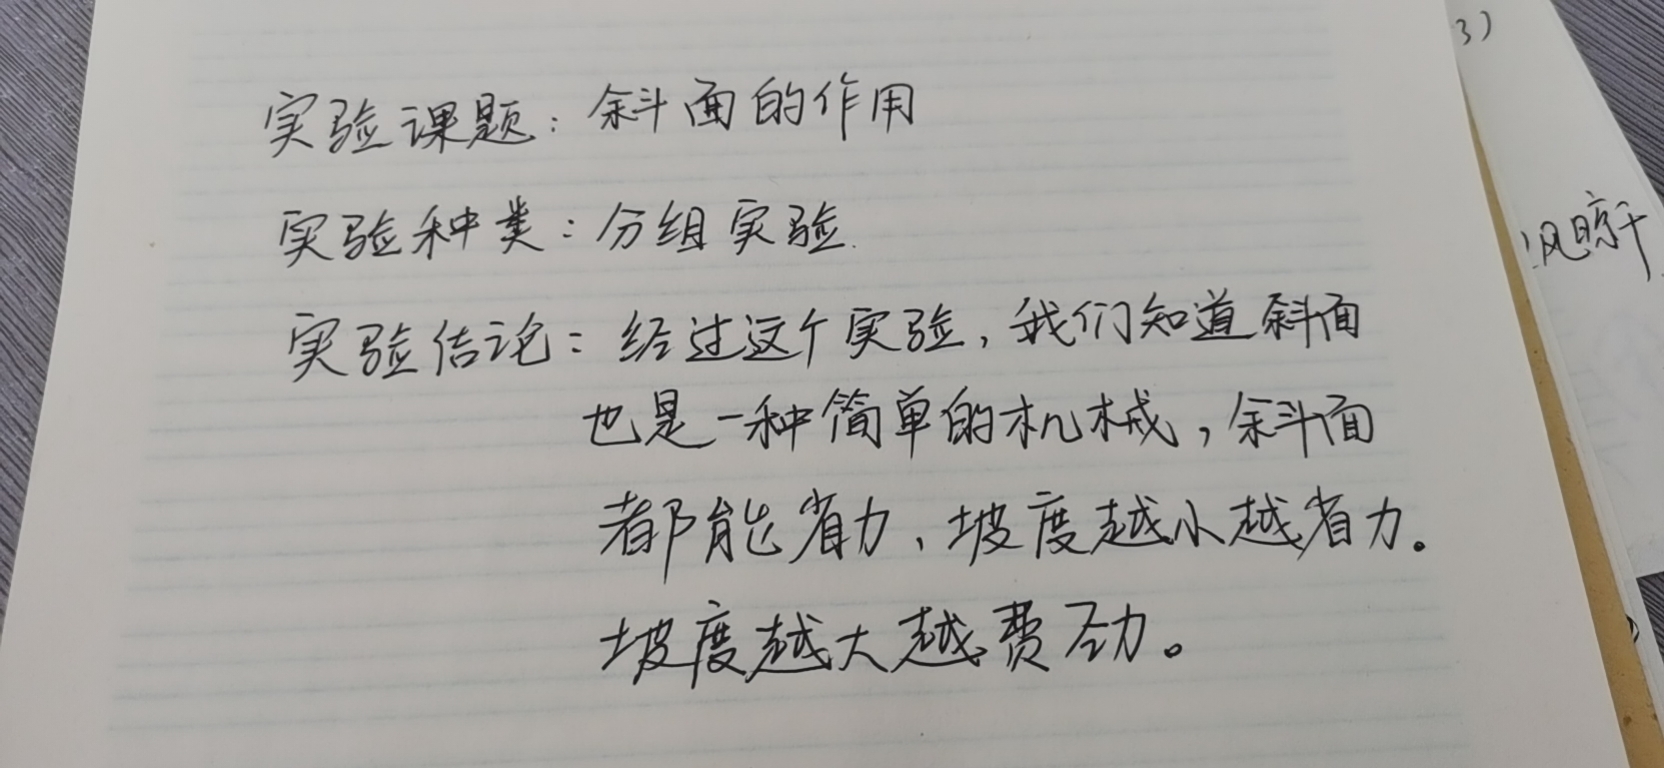 实验课题：斜面的作用
实验种类：分组实验.
实验结论：经过这个实验，我们知道斜面
也是一种简单的机械，斜面
都能省力、坡度越小越省力。
坡度越大越费劲。
3）
风晾干